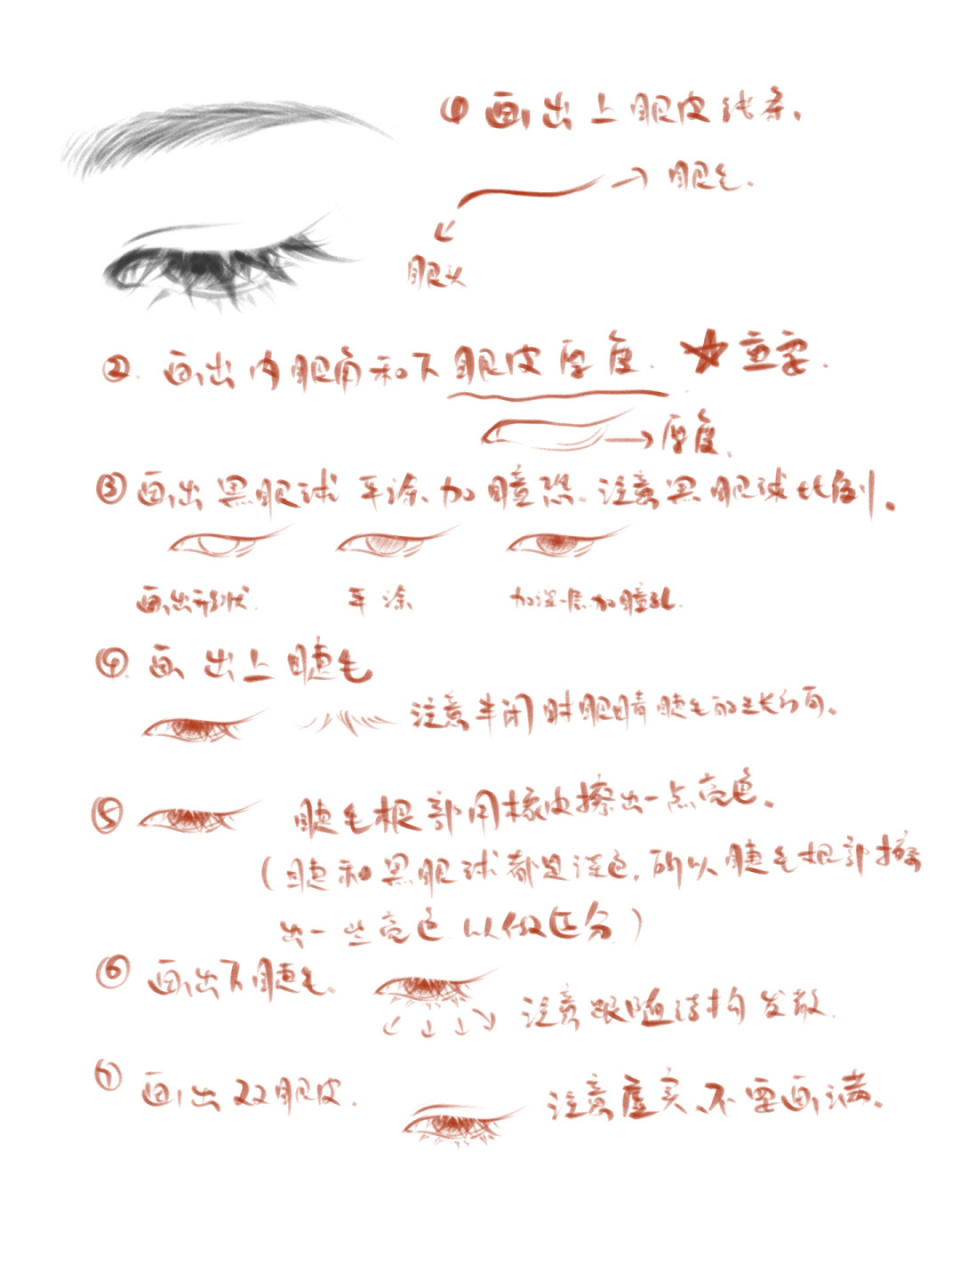 ① 画出上眼皮线条.
→ 眼尾.
眼头
②. 画出内眼角和下眼皮厚度. ☆重要.
→厚度.
③ 画出黑眼球 平涂、加瞳孔. 注意黑眼球比例.
画出形状. 平涂. 加深一层加瞳孔.
④. 画出上睫毛
注意半闭时眼睛睫毛的生长方向.
⑤ 睫毛根部用橡皮擦出一点亮色.
(睫和黑眼球都是深色, 所以睫毛根部擦
出一些亮色以做区分)
⑥ 画出下睫毛.
注意跟随结构发散.
⑦ 画出双眼皮.
注意虚实、不要画满.